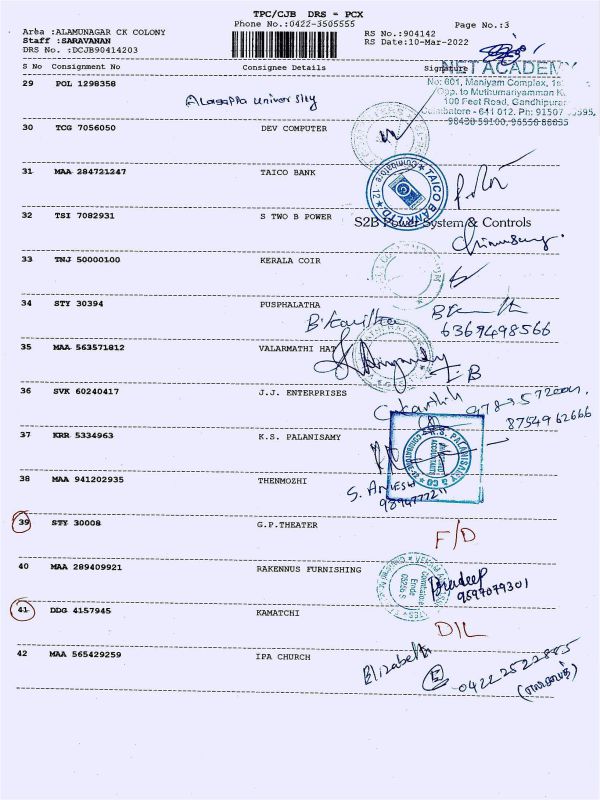 TPC/CJB DRS - PCX
Phone No.:0422-3505555
Page No.:3
Area :ALAMUNAGAR CK COLONY
Staff :SARAVANAN
DRS No. :DCJB90414203
RS No.:904142
RS Date:10-Mar-2022
S No Consignment No Consignee Details Signature
NET ACADEMY
No: 601, Maniyam Complex, 1st
Opp. to Muthumariyamman K.
100 Feet Road, Gandhipuram
Coimbatore - 641 012. Ph: 91507
98430 59100, 95556 88835
29 POL 1298358
Alagappa University
30 TCG 7056050 DEV COMPUTER
31 MAA 284721247 TAICO BANK
TAICO BANK LTD
Coimbatore. 12
32 TSI 7082931 S TWO B POWER
S2B Power System & Controls
33 TNJ 50000100 KERALA COIR
34 STY 30394 PUSPHALATHA
B. Kavitha
6369498566
35 MAA 563571812 VALARMATHI HAT
36 SVK 60240417 J.J. ENTERPRISES
C. Karthik
8754962666
37 KRR 5334963 K.S. PALANISAMY
K.S. PALANISAMY & CO
CHARTERED ACCOUNTANTS
38 MAA 941202935 THENMOZHI
39 STY 30008 G.P.THEATER
F/D
40 MAA 289409921 RAKENNUS FURNISHING
Pradeep
9597079301
41 DDG 4157945 KAMATCHI
D/L
42 MAA 565429259 IPA CHURCH
Elizabeth
0422 2522885